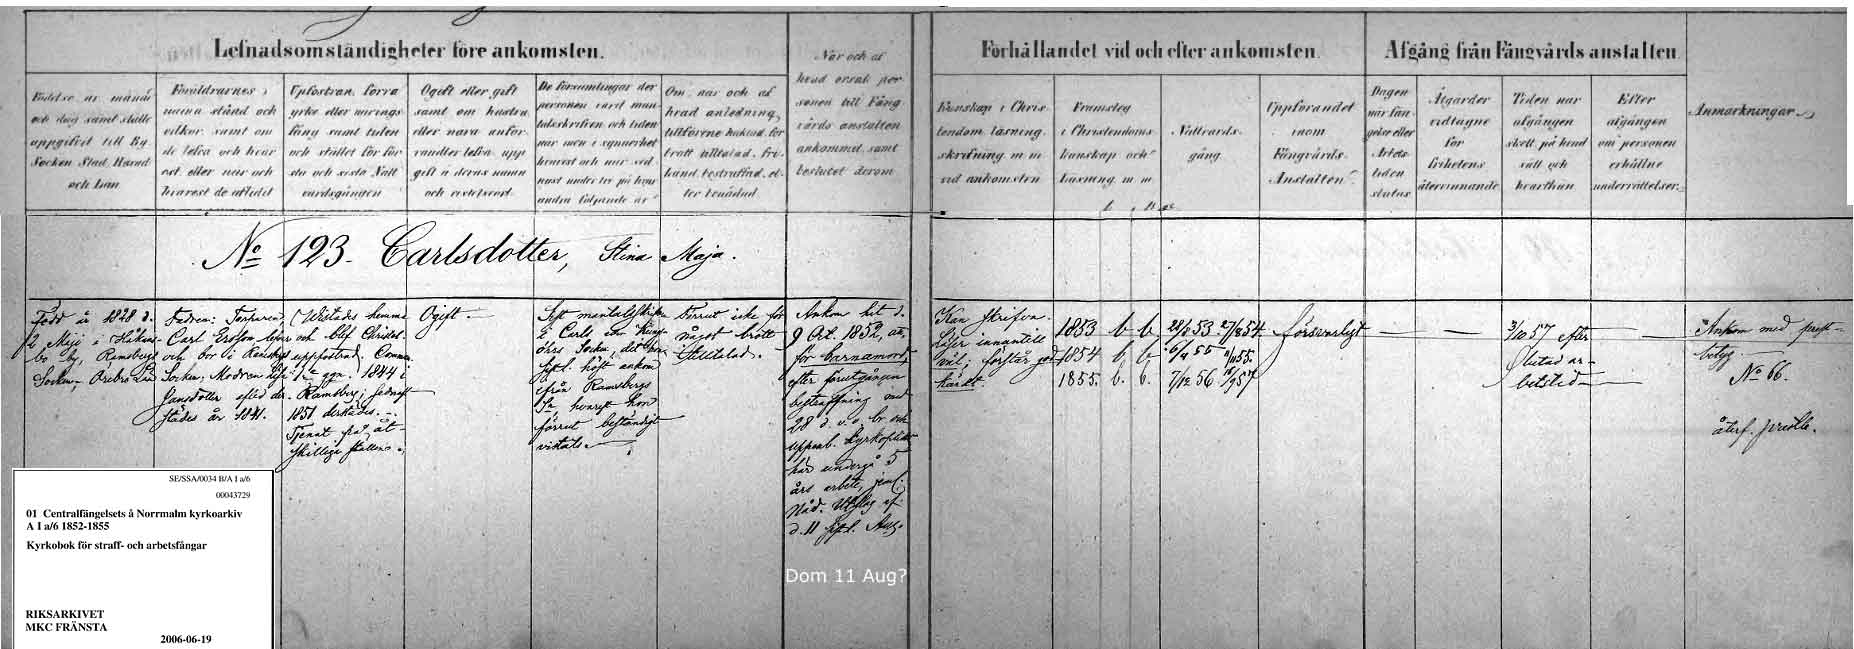 Lefnadsomständigheter före ankomsten.
Födelse år, månad
och dag samt ställe
uppgifvit till By,
Socken, Stad, Härad
och Län
Föräldrarnes
namn stånd och
vilkor, samt om
de lefva och hvar
est, eller när och
hvarest de aflidit
Uppfostran, förra
yrke eller närings
fång samt tiden
och stället för för
sta och sista Natt
vardsgången
Ogift eller gift
samt om hustru
eller nära anför
vandter lefva, upp
gift å deras namn
och vistelseort
De församlingar der
personen varit man
talsskrifven och tiden
när men i synnerhet
hvarest och när sed
nast under tre på hvar
andra följande år
Om, när och af
hvad anledning,
tillförene häktad, för
brott tilltalad, fri
känd, bestraffad, el-
ler benådad
När och af
hvad orsak per
sonen till Fång
vårds anstalten
ankommit, samt
beslutet derom
Förhållandet vid och efter ankomsten.
Kunskap i Chris
tendom, läsning,
skrifning m m
vid ankomsten
Framsteg
i Christendoms
kunskap och
läsning m m
Nattvards-
gång
Uppförandet
inom
Fångvårds-
Anstalten
Afgång från Fångvårds anstalten.
Dagen
när fän-
gelse eller
Arbets-
tiden
slutas
Åtgärder
vidtagne
för
frihetens
återvinnande
Tiden när
afgången
skett, på hvad
sätt och
hvarthän
Efter
afgången
om personen
erhållne
underrättelser
Anmärkningar
No 123. Carlsdotter, Stina Maja.
Född år 1828 d.
2 Maji i Håkans
bo by, Ramsbergs
Socken, Örebro Län
Fadren: Torparen
Carl Ersson lefver
och bor i Ramsbergs
Socken; Modren
Jansdotter afled der-
städes år 1841.
Wistades hemma
och blef Christel.
uppfostrad. Comm.
1:a ggn. 1844 i
Ramsberg, sednast
1851 derstädes.
Tjenat på åt-
skilliga ställen.
Ogift.
Sist mantalsskrifven
i Carls
Socken, dit hon
sistl. höst ankom
ifrån Ramsbergs
Sn, hvarest hon
förut beständigt
vistats.
Förrut icke för
något brott
tilltalad.
Ankom hit d.
9 Oct. 1852, att,
för barnamord,
efter förutgången
bestraffning med
28 d. v. o. br. och
uppenb. kyrkoplikt
här undergå 5
års arbete, jeml.
Nåd. Utslag af
d. 11 Sept. Aug.
Dom 11 Aug?
Kan skrifva.
läser innantill
väl; förstår god
kändt
1853 b b
1854 b, b
1855. b. b.
28/2 53 27/8 54
6/4 55 11/11 55.
7/12 56 18/9 57
försvarligt
3/10 57 efter
slutad ar-
betstid
Ankom med prest-
betyg.
No 66.
återf.
SE/SSA/0034 B/A I a/6
00043729
01 Centralfängelsets å Norrmalm kyrkoarkiv
A I a/6 1852-1855
Kyrkobok för straff- och arbetsfångar
RIKSARKIVET
MKC FRÄNSTA
2006-06-19